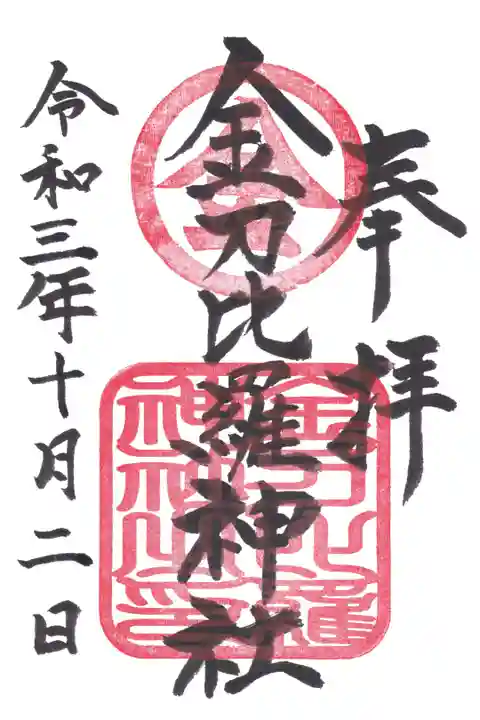 奉拝
金刀比羅神社
令和三年十月二日
金
金刀比羅
神社之印